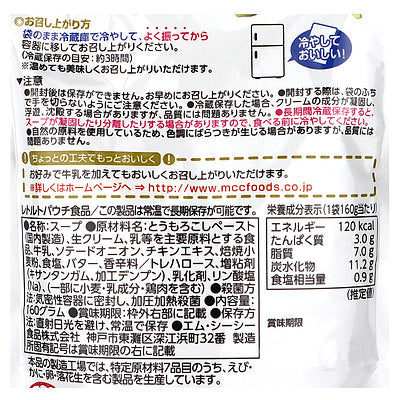 ◎お召し上がり方
袋のまま冷蔵庫で冷やして、よく振ってから
容器に移してお召し上がりください。
(冷蔵保存の目安:約3時間)
※温めても美味しくお召し上がりいただけます。
冷やして
おいしい!
▼注意
●開封後は保存ができません。お早めにお召し上がりください。●開封する際は、袋のふち
で手を切らないようにご注意ください。●冷蔵保存した場合、クリームの成分が凝固し、
浮遊、沈殿する場合がありますが、品質には問題ありません。●長期間冷蔵保存すると、
スープが凝固したり分離したりする場合がありますので、食べる前に振ってください。
●自然の原料を使用しているため、色調にばらつきが生じる場合がありますが、品質には
問題ありません。
ちょっとの工夫でもっとおいしく
お好みで牛乳を加えてもおいしくお召し上がりいただけます。
※詳しくはホームページへ➡http://www.mccfoods.co.jp
レトルトパウチ食品/この製品は常温で長期保存が可能です。
●名称:スープ ●原材料名:とうもろこしペースト
(国内製造)、生クリーム、乳等を主要原料とする食
品、牛乳、ソテードオニオン、チキンエキス、焙焼小
麦粉、食塩、バター、香辛料/トレハロース、増粘剤
(キサンタンガム、加工デンプン)、乳化剤、リン酸塩
(Na)、(一部に小麦・乳成分・鶏肉を含む) ●殺菌方
法:気密性容器に密封し、加圧加熱殺菌 ●内容量:
160グラム ●賞味期限:枠外右部に記載 ●保存方
法:直射日光を避け、常温で保存 ●エム・シーシー
食品株式会社 神戸市東灘区深江浜町32番 製造
所固有記号は賞味期限の右に記載
栄養成分表示(1袋160g当たり)
エネルギー 120 kcal
たんぱく質 3.0 g
脂質 7.0 g
炭水化物 11.2 g
食塩相当量 0.9 g
(推定値)
賞味期限
本品の製造工場では、特定原材料7品目のうち、えび・
かに・卵・落花生を含む製品を生産しています。